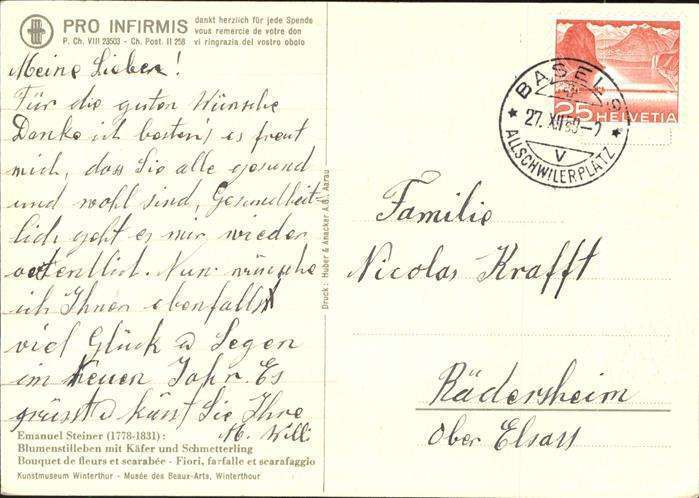 PRO INFIRMIS
P. Ch. VIII 23503 - Ch. Post. II 258
dankt herzlich für jede Spende
vous remercie de votre don
vi ringrazia del vostro obolo
Meine Lieben!
Für die guten Wünsche
Danke ich bestens, es freut
mich, dass Sie alle gesund
und wohl sind, Gesundheit-
lich geht es mir wieder
ordentlich. Nun wünsche
ich Ihnen ebenfalls
viel Glück u Segen
im neuen Jahr. Es
grüsst u küsst Sie Ihre
M. Willi
Emanuel Steiner (1778-1831):
Blumenstilleben mit Käfer und Schmetterling
Bouquet de fleurs et scarabée - Fiori, farfalle et scarafaggio
Kunstmuseum Winterthur - Musée des Beaux-Arts, Winterthour
Druck: Huber & Anacker A.G. Aarau
25 HELVETIA
BASEL 9
27. XII
V
ALLSCHWILERPLATZ
Familie
Nicolas Krafft
Rädersheim
Ober Elsass